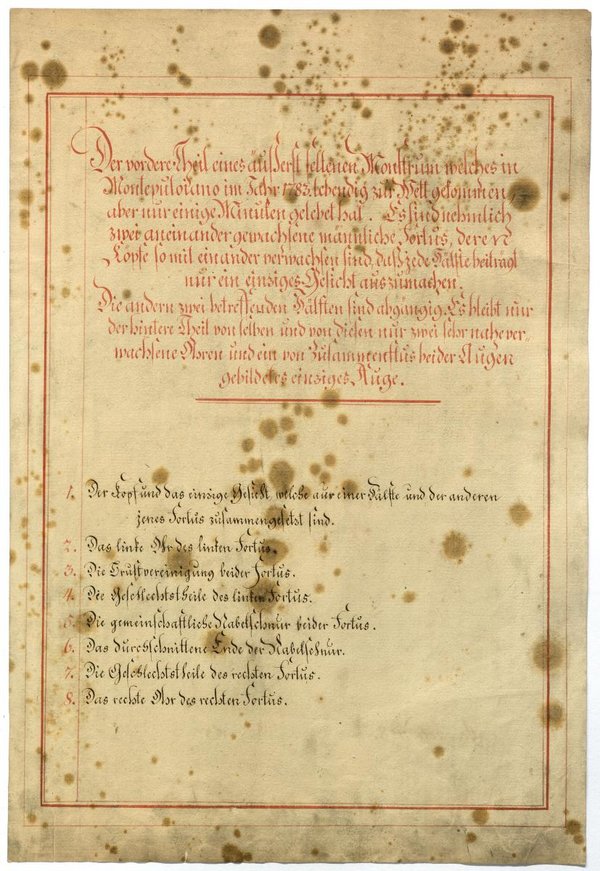 Der vordere Theil eines äußerst seltenen Monstrum welches in
Montevilorano im Jahr 1783. lebendig zur Welt gekommen,
aber nur einige Minuten gelebet hat. Es sind nehmlich
zwei aneinander gewachsene männliche Foetus, deren
Köpfe so mit einander verwachsen sind, daß jede Hälfte beiträgt
nur ein einziges Gesicht auszumachen.
Die andern zwei betreffenden Hälften sind abgängig. Es bleibt nur
der hintere Theil von selben und von diesen nur zwei sehr nahe ver-
wachsene Ohren und ein von Zusammenflus beider Augen
gebildetes einziges Auge.
1. Der Kopf und das einzige Gesicht welche aus einer Hälfte und der anderen
jenes Foetus zusammengesetzt sind.
2. Das linke Ohr des linken Foetus.
3. Die Brustvereinigung beider Foetus.
4. Die Geschlechtstheile des linken Foetus.
5. Die gemeinschaftliche Nabelschnur beider Foetus.
6. Das durchschnittene Ende der Nabelschnur.
7. Die Geschlechtstheile des rechten Foetus.
8. Das rechte Ohr des rechten Foetus.